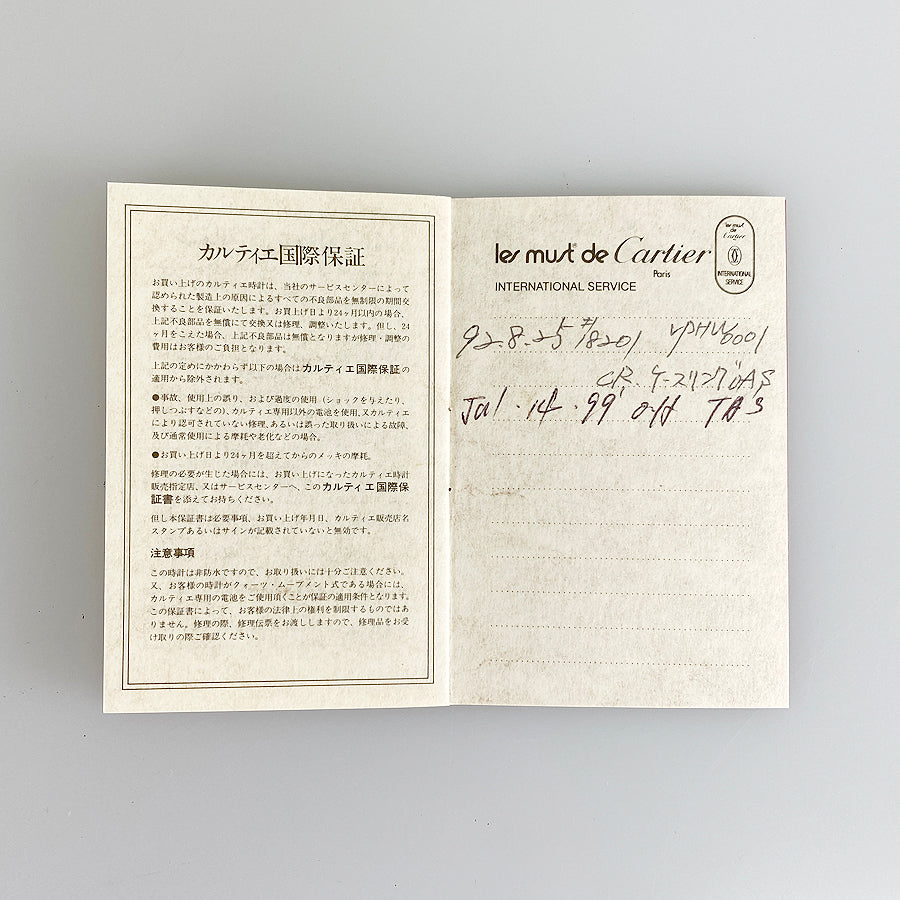 カルティエ国際保証
お買い上げのカルティエ時計は、当社のサービスセンターによって
認められた製造上の原因によるすべての不良部品を無制限の期間交
換することを保証いたします。お買上げ日より24ヶ月以内の場合、
上記不良部品を無償にて交換又は修理、調整いたします。但し、24
ヶ月をこえた場合、上記不良部品は無償となりますが修理・調整の
費用はお客様のご負担となります。
上記の定めにかかわらず以下の場合はカルティエ国際保証の
適用から除外されます。
●事故、使用上の誤り、および過度の使用(ショックを与えたり、
押しつぶすなどの)、カルティエ専用以外の電池を使用、又カルティエ
により認可されていない修理、あるいは誤った取り扱いによる故障、
及び通常使用による摩耗や老化などの場合。
●お買い上げ日より24ヶ月を超えてからのメッキの摩耗。
修理の必要が生じた場合には、お買い上げになったカルティエ時計
販売指定店、又はサービスセンターへ、このカルティエ国際保
証書を添えてお持ちください。
但し本保証書は必要事項、お買い上げ年月日、カルティエ販売店名
スタンプあるいはサインが記載されていないと無効です。
注意事項
この時計は非防水ですので、お取り扱いには十分ご注意ください。
又、お客様の時計がクォーツ・ムーブメント式である場合には、
カルティエ専用の電池をご使用頂くことが保証の適用条件となります。
この保証書によって、お客様の法律上の権利を制限するものではあ
りません。修理の際、修理伝票をお渡ししますので、修理品をお受
け取りの際ご確認ください。
les must de Cartier
Paris
INTERNATIONAL SERVICE
les must
de
Cartier
INTERNATIONAL
SERVICE
92.8.25 #18201
CR. ケースリング
Jul. 14. 99'